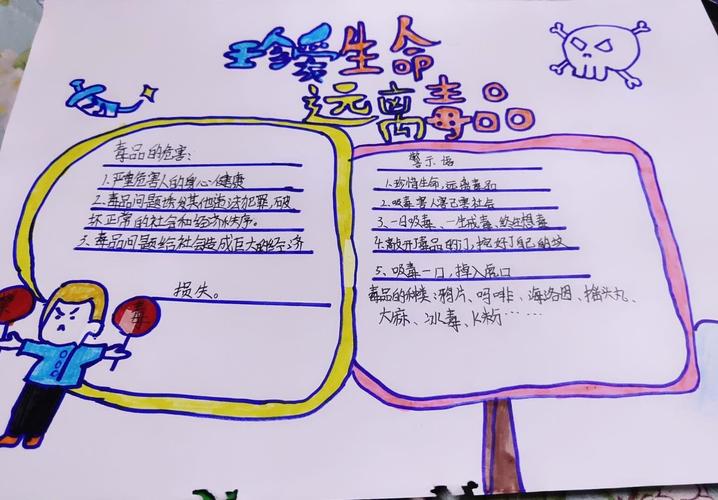 珍爱生命
远离毒品
毒品的危害:
1.严重危害人的身心健康
2.毒品问题诱发其他违法犯罪,破
坏正常的社会和经济秩序。
3.毒品问题给社会造成巨大的经济
损失。
禁
毒
警示语
1.珍惜生命,远离毒品
2.吸毒害人害己害社会
3、一日吸毒、一生戒毒、终还想毒
4.敲开了毒品的门,挖好了自己的坟
5、吸毒一口,掉入虎口
毒品的种类:鸦片、吗啡、海洛因、摇头丸、
大麻、冰毒、K粉……